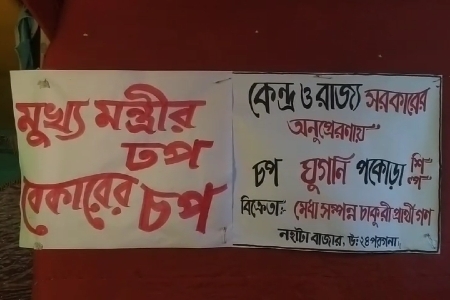 মুখ্য মন্ত্রীর
ঢপ
বেকারের চপ
কেন্দ্র ও রাজ্য সরকারের
অনুপ্রেরণায়
চপ ঘুগনি পকোড়া শিল্প
বিক্রেতা:- মেধা সম্পন্ন চাকুরী প্রার্থী গণ
নহাটা বাজার, উঃ ২৪ পরগনা